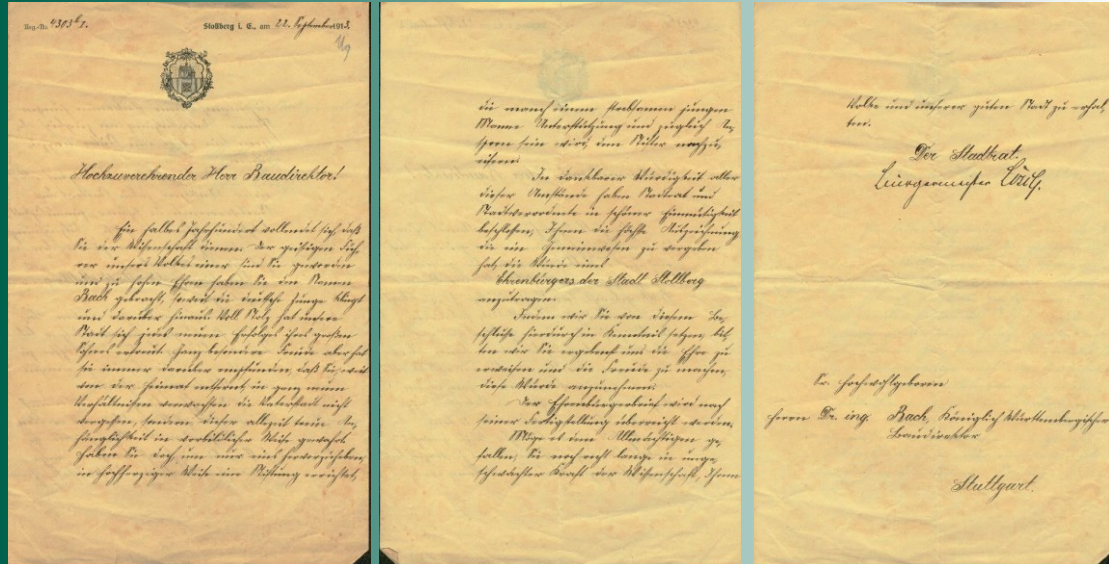 Reg.-Nr. 4303 b I.
Stollberg i. E., am 22. September 1913.
Hochzuverehrender Herr Baudirektor!
Ein halbes Jahrhundert vollendet sich, daß
Sie der Wissenschaft dienen. Der geistigen Füh-
rer unseres Volkes einer sind Sie geworden
und zu hohen Ehren haben Sie den Namen
Bach gebracht, soweit die deutsche Zunge klingt
und darüber hinaus. Voll Stolz hat unsere
Stadt sich jedes neuen Erfolges ihres großen
Sohnes erfreut. Ganz besondere Freude aber hat
sie immer darüber empfunden, daß Sie, weit
von der Heimat entfernt, in ganz neuen
Verhältnissen verwachsen die Vaterstadt nicht
vergessen, sondern dieser allezeit treue An-
hänglichkeit in vorbildlicher Weise gewahrt
haben Sie doch, um nur eins hervorzuheben,
in hochherziger Weise eine Stiftung errichtet,
die manch einem strebsamen jungen
Manne Unterstützung und zugleich An-
sporn sein wird, dem Stifter nachzu-
eifern.
In dankbarer Würdigkeit aller
dieser Umstände haben Stadtrat und
Stadtverordnete in schöner Einmütigkeit
beschlossen, Ihnen die höchste Auszeichnung
die ein Gemeinwesen zu vergeben
hat, die Würde eines
Ehrenbürgers der Stadt Stollberg
anzutragen.
Indem wir Sie von diesem Be-
schlusse hierdurch in Kenntnis setzen, bit-
ten wir Sie ergebenst uns die Ehre zu
erweisen und die Freude zu machen,
diese Würde anzunehmen.
Der Ehrenbürgerbrief wird nach
seiner Fertigstellung überreicht werden.
Möge es dem Allmächtigen ge-
fallen, Sie noch recht lange in unge-
schwächter Kraft der Wissenschaft, Ihrem
Volke und unserer guten Stadt zu erhal-
ten.
Der Stadtrat.
Bürgermeister
Sr. Hochwohlgeboren
Herrn Dr. ing. Bach, Königlich Württembergischer
Baudirektor
Stuttgart.